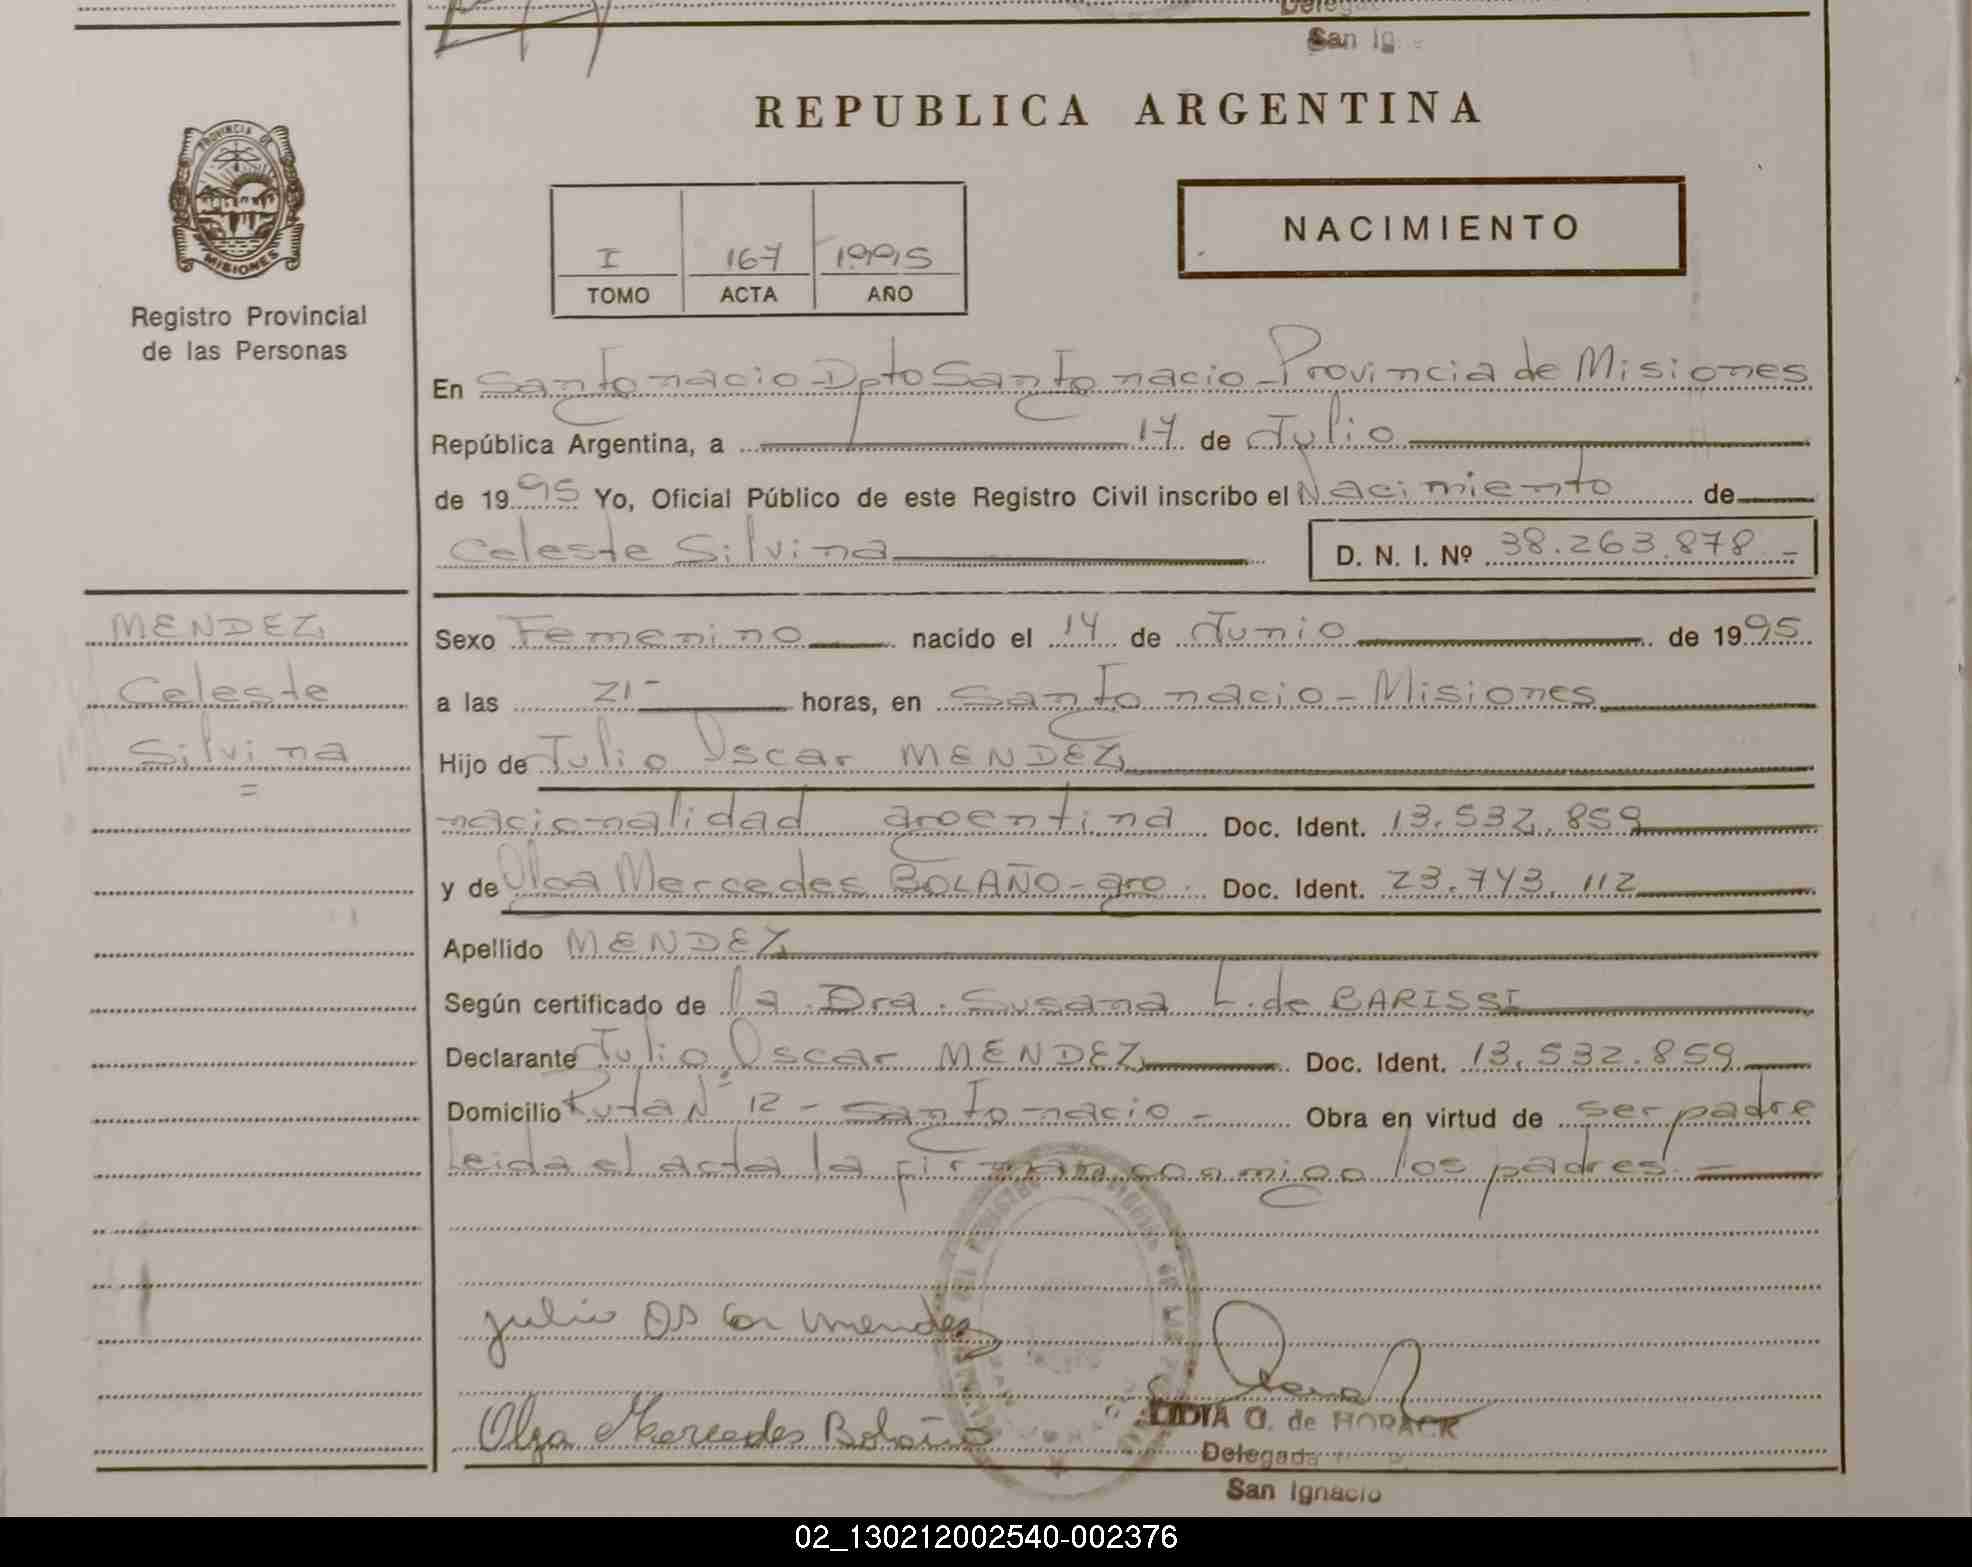 San Ig
REPUBLICA ARGENTINA
PROVINCIA DE
MISIONES
Registro Provincial
de las Personas
I 167 1995
TOMO ACTA AÑO
NACIMIENTO
En San Ignacio - Dpto San Ignacio - Provincia de Misiones
República Argentina, a 17 de Julio
de 1995 Yo, Oficial Público de este Registro Civil inscribo el Nacimiento de
Celeste Silvina D. N. I. Nº 38.263.878 -
MENDEZ
Celeste
Silvina
=
Sexo Femenino nacido el 14 de Junio de 1995
a las 21- horas, en San Ignacio - Misiones
Hijo de Julio Oscar MENDEZ
nacionalidad argentina Doc. Ident. 13.532.859
y de Olga Mercedes BOLAÑO - arg. Doc. Ident. 23.743.112
Apellido MENDEZ
Según certificado de la Dra. Susana L. de BARISSI
Declarante Julio Oscar MENDEZ Doc. Ident. 13.532.859
Domicilio Ruta Nº 12 - San Ignacio - Obra en virtud de ser padre
leida el acta la firman conmigo los padres. -
julio Oscar mendez
Olga Mercedes Bolaño
LIDIA O. de HORACK
Delegada
San Ignacio
02_130212002540-002376